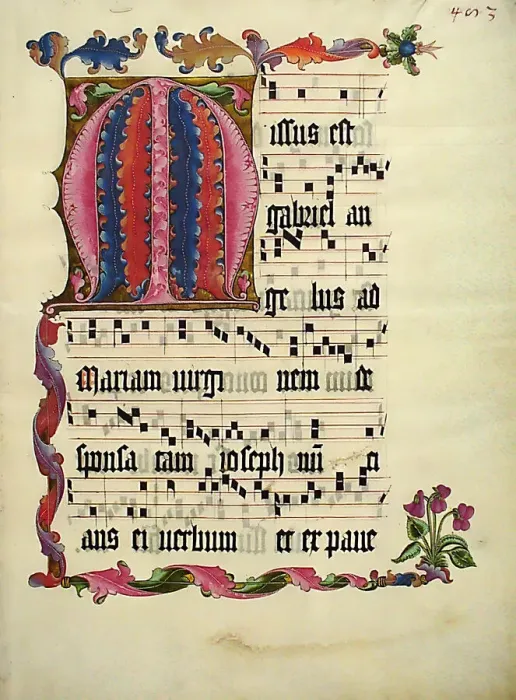 403
Missus est
gabriel an
ge lus ad
Mariam virgi nem de
sponsa tam ioseph nū ci
ans ei verbum et ex pave